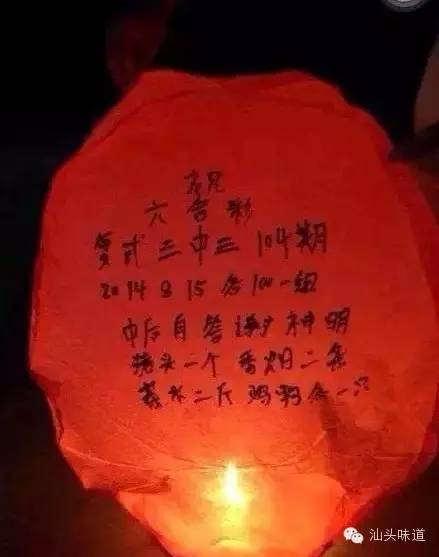 祝
六合彩
复式三中三 104期
2014 8 15 各100一组
中后自答谢神明
猪头一个 香烟二条
茶水二斤 鸡鹅各一只
汕头味道